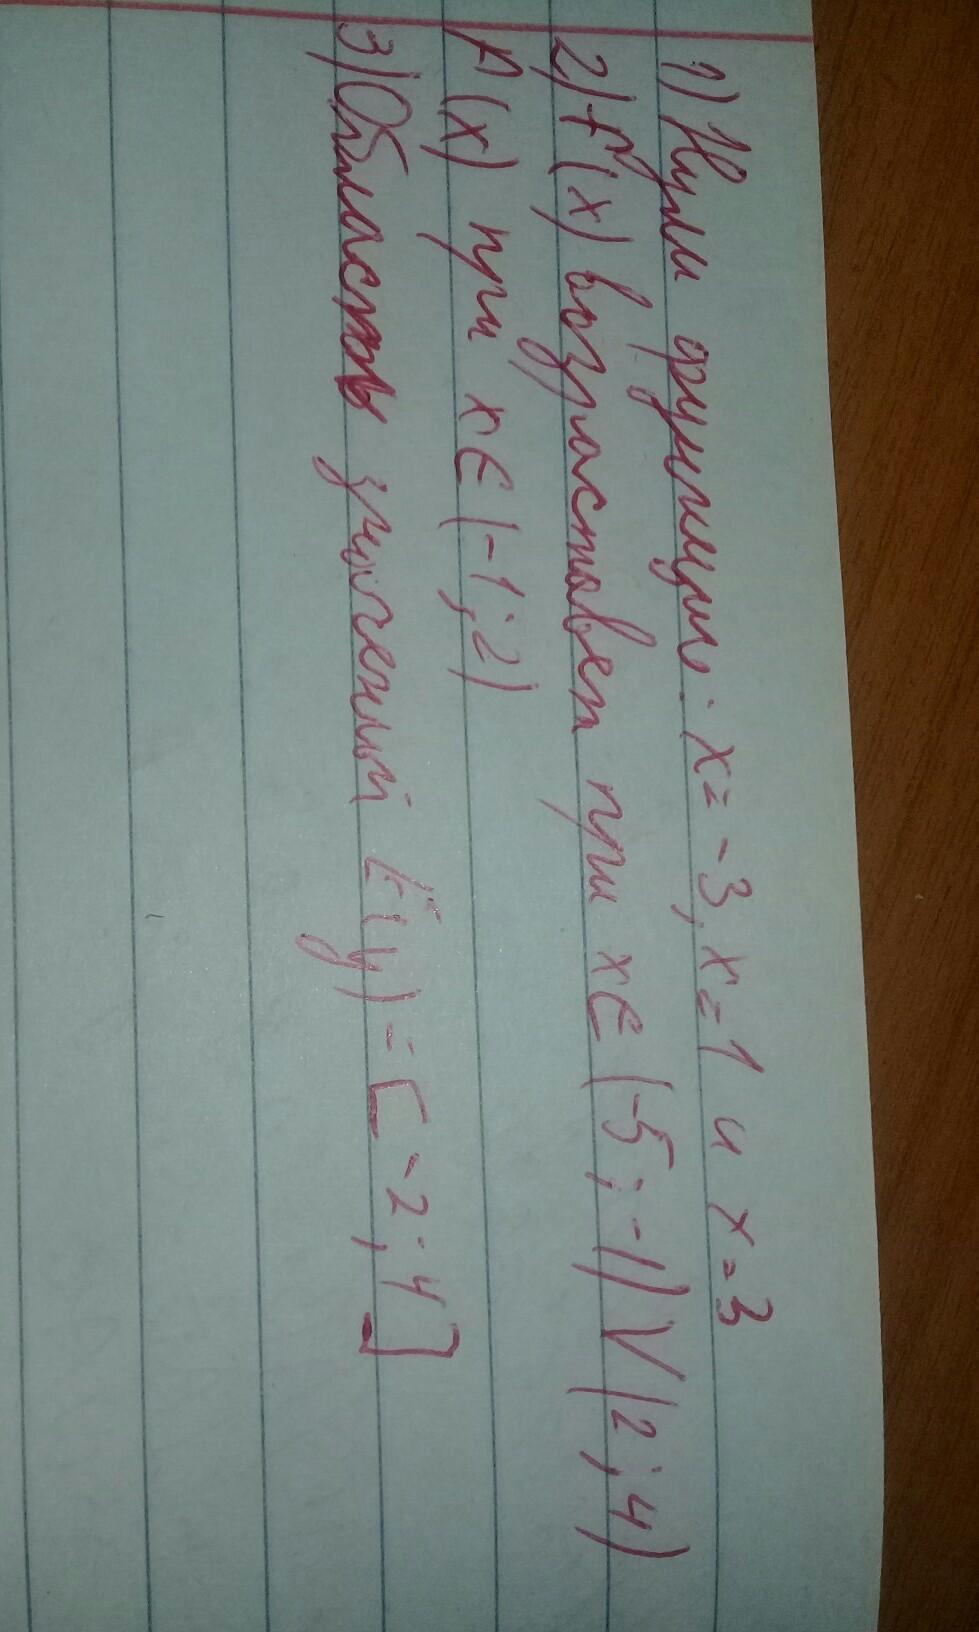 1) Нули функции: x=-3, x=1 и x=3
2) f(x) возрастает при x∈(-5;-1)V(2;4)
f(x) при x∈(-1;2)
3) Область значений E(y)=[-2;4]